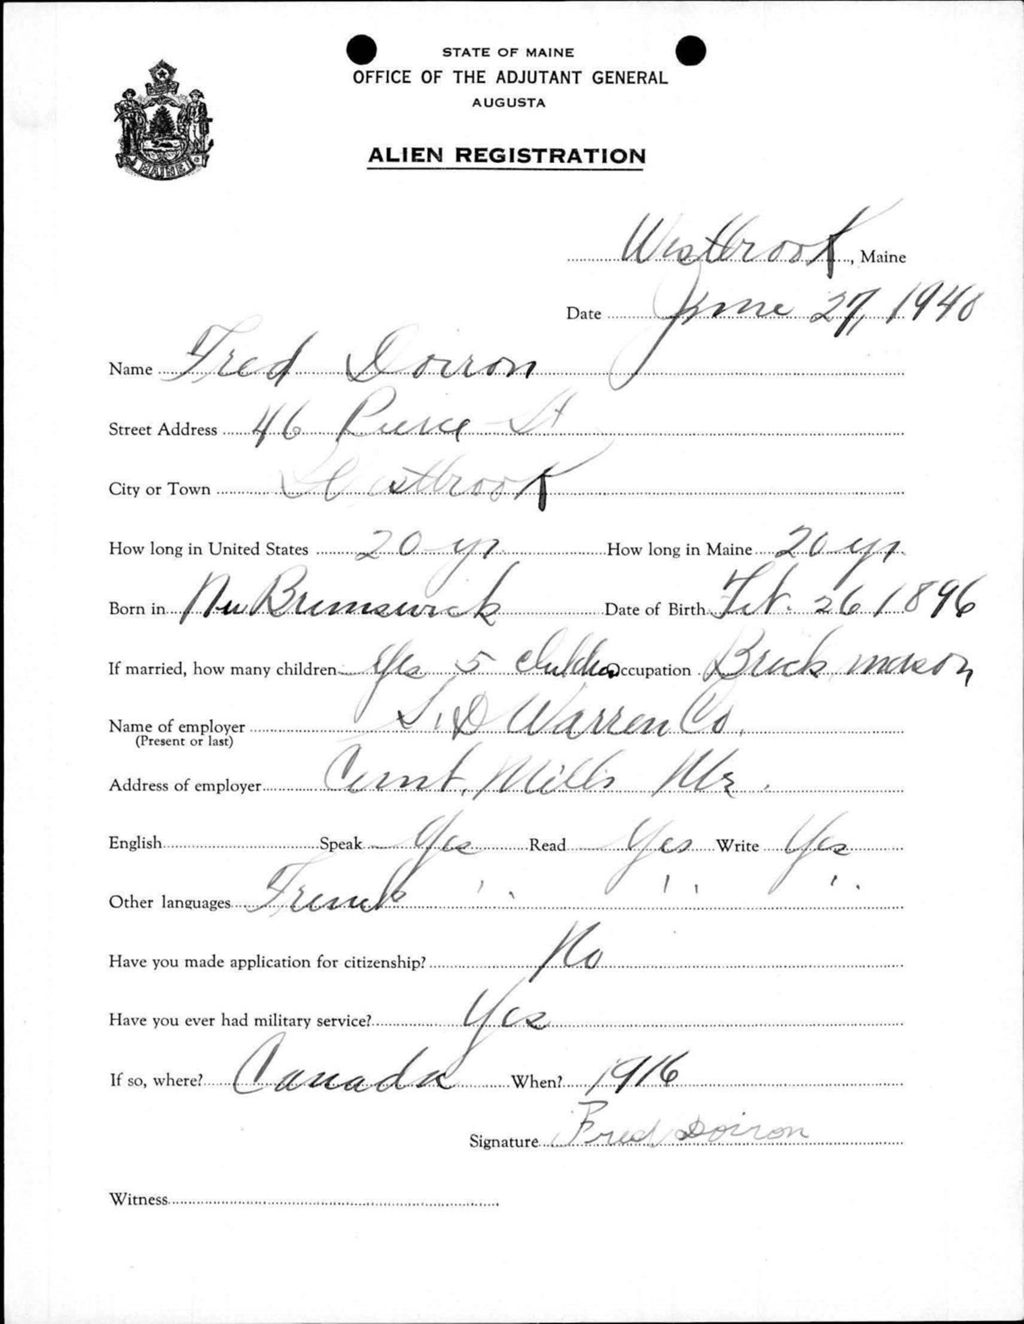 STATE OF MAINE
OFFICE OF THE ADJUTANT GENERAL
AUGUSTA
ALIEN REGISTRATION
MAINE
Westbrook, Maine
Date June 27, 1940
Name Fred Doiron
Street Address 46 Pierce St
City or Town Westbrook
How long in United States 20 yr How long in Maine 20 yr
Born in Nu Brunswick Date of Birth Feb. 26 1896
If married, how many children Yes 5 children Occupation Brick mason
Name of employer S. D Warren Co.
(Present or last)
Address of employer Cumb. Mills Me.
English Speak Yes Read Yes Write Yes
Other languages French " " "
Have you made application for citizenship? No
Have you ever had military service? Yes
If so, where? Canada When? 1916
Signature Fred Doiron
Witness